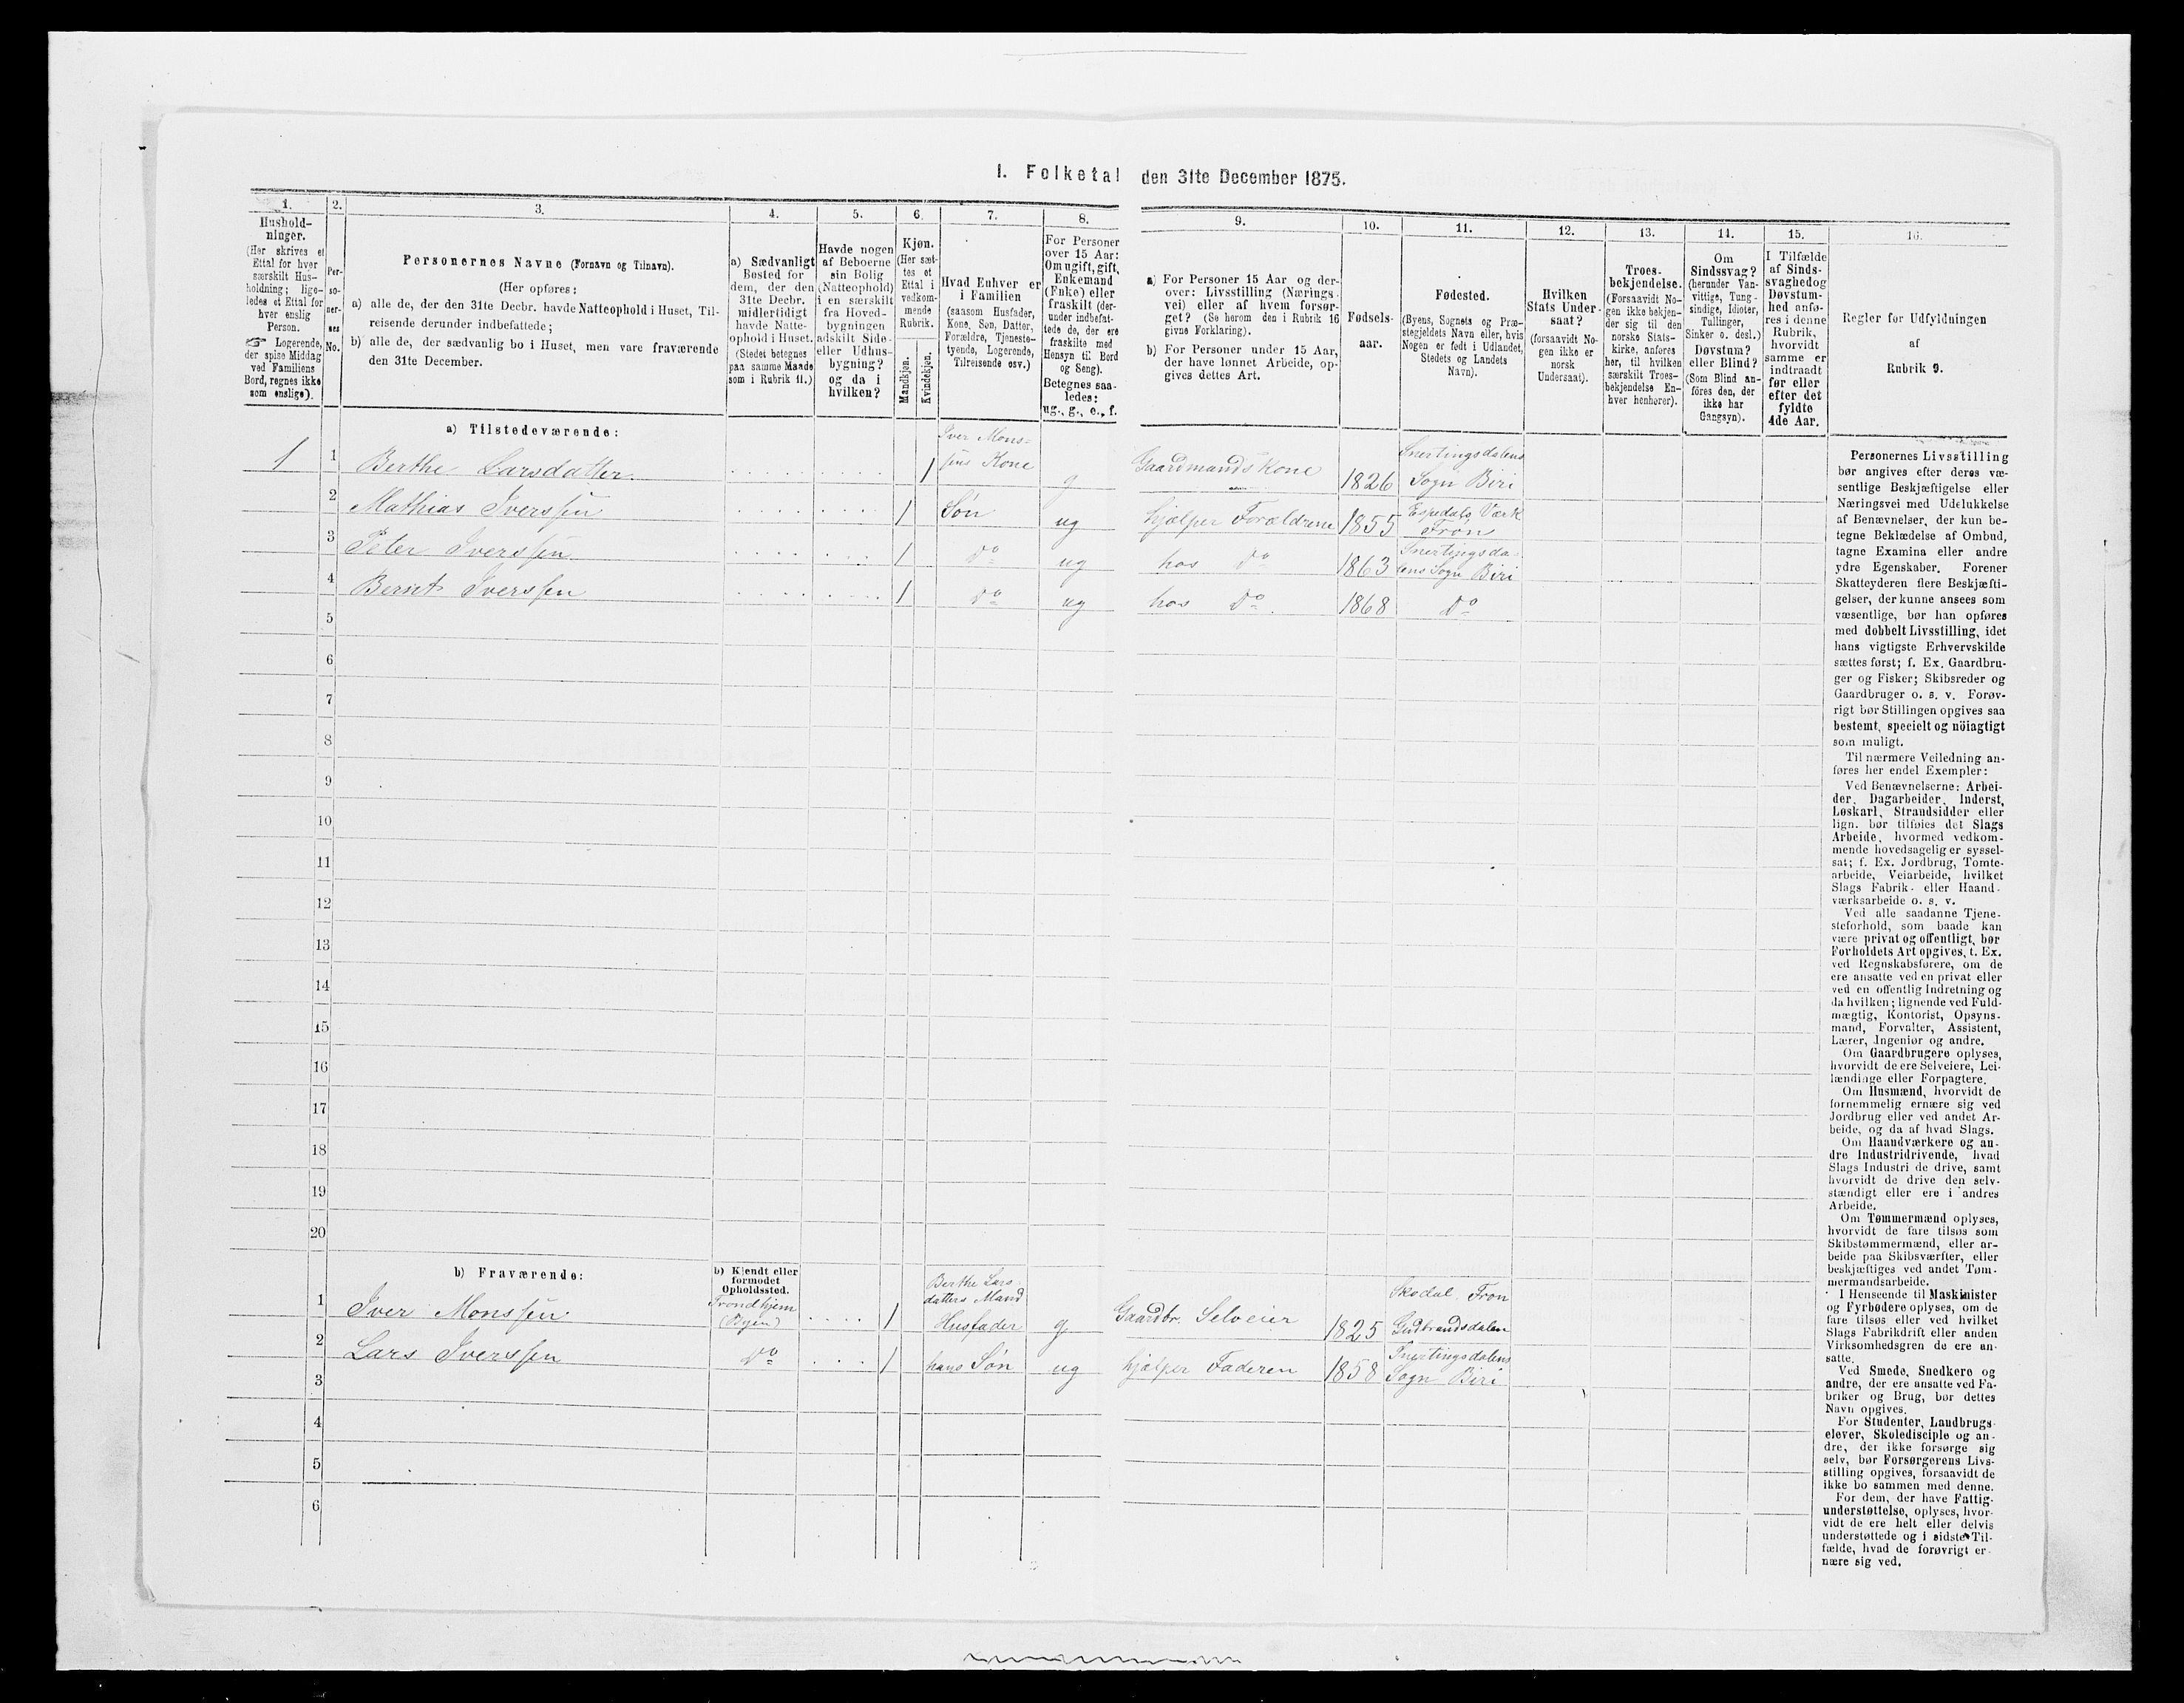 I. Folketal den 31te December 1875.
1.
Hushold-
ninger.
(Her skrives et
Ettal for hver
særskilt Hus-
holdning; lige-
ledes et Ettal for
hver enslig
Person.
☞ Logerende,
der spise Middag
ved Familiens
Bord, regnes ikke
som enslige).
2.
Per-
so-
ner-
nes
No.
3.
Personernes Navne (Fornavn og Tilnavn).
(Her opføres:
a) alle de, der den 31te Decbr. havde Natteophold i Huset, Til-
reisende derunder indbefattede;
b) alle de, der sædvanlig bo i Huset, men vare fraværende
den 31te December.
4.
a) Sædvanligt
Bosted for
dem, der den
31te Decbr.
midlertidigt
havde Natte-
ophold i Huset.
(Stedet betegnes
paa samme Maade
som i Rubrik 11.)
5.
Havde nogen
af Beboerne
sin Bolig
(Natteophold)
i en særskilt
fra Hoved-
bygningen
adskilt Side-
eller Udhus-
bygning?
og da i
hvilken?
6.
Kjøn.
(Her sæt-
tes et
Ettal i
vedkom-
mende
Rubrik.
Mandkjøn.
Kvindekjøn.
7.
Hvad Enhver er
i Familien
(saasom Husfader,
Kone, Søn, Datter,
Forældre, Tjeneste-
tyende, Logerende,
Tilreisende osv.)
8.
For Personer
over 15 Aar:
Om ugift, gift,
Enkemand
(Enke) eller
fraskilt (der-
under indbefat-
tede de, der ere
fraskilte med
Hensyn til Bord
og Seng).
Betegnes saa-
ledes:
ug., g., e., f.
9.
a) For Personer 15 Aar og der-
over: Livsstilling (Nærings-
vei) eller af hvem forsør-
get? (Se herom den i Rubrik 16
givne Forklaring).
b) For Personer under 15 Aar,
der have lønnet Arbeide, op-
gives dettes Art.
10.
Fødsels-
aar.
11.
Fødested.
(Byens, Sognets og Præ-
stegjeldets Navn eller, hvis
Nogen er født i Udlandet,
Stedets og Landets
Navn).
12.
Hvilken
Stats Under-
saat?
(forsaavidt No-
gen ikke er
norsk
Undersaat).
13.
Troes-
bekjendelse.
(Forsaavidt No-
gen ikke bekjen-
der sig til den
norske Stats-
kirke, anføres
her, til hvilken
særskilt Troes-
bekjendelse En-
hver henhører).
14.
Om
Sindssvag?
(herunder Van-
vittige, Tung-
sindige, Idioter,
Tullinger,
Sinker o. desl.)
Døvstum?
eller Blind?
(Som Blind an-
føres den, der
ikke har
Gangsyn).
15.
I Tilfælde
af Sinds-
svaghed og
Døvstum-
hed anfø-
res i denne
Rubrik,
hvorvidt
samme er
indtraadt
før eller
efter det
fyldte
4de Aar.
16.
Regler for Udfyldningen
af
Rubrik 9.
a) Tilstedeværende:
1 1 Berthe Larsdatter 1 Iver Mons=
sens Kone g Gaardmandskone 1826 Snertingsdalens
Sogn Biri
2 Mathias Iverssen 1 Søn ug hjælper Forældrene 1855 Espedals Værk
Fron
3 Peter Iverssen 1 do ug hos do 1863 Snertingsda-
lens Sogn Biri
4 Bernt Iverssen 1 do ug hos do. 1868 do
5
6
7
8
9
10
11
12
13
14
15
16
17
18
19
20
b) Fraværende:
b) Kjendt eller
formodet
Opholdssted.
1 Iver Monssen Trondhjem
(Byen) 1 Berthe Lars-
datters Mand
Husfader g Gaardbr. Selveier 1825 Skodal. Fron
Gudbrandsdalen
2 Lars Iverssen do 1 hans Søn ug hjælper Faderen 1858 Snertingsdalens
Sogn Biri
3
4
5
6
Personernes Livsstilling
bør angives efter deres væ-
sentlige Beskjæftigelse eller
Næringsvei med Udelukkelse
af Benævnelser, der kun be-
tegne Beklædelse af Ombud,
tagne Examina eller andre
ydre Egenskaber. Forener
Skatteyderen flere Beskjæfti-
gelser, der kunne ansees som
væsentlige, bør han opføres
med dobbelt Livsstilling, idet
hans vigtigste Erhvervskilde
sættes først; f. Ex. Gaardbru-
ger og Fisker; Skibsreder og
Gaardbruger o. s. v. Forøv-
rigt bør Stillingen opgives saa
bestemt, specielt og nöiagtigt
som muligt.
Til nærmere Veiledning an-
føres her endel Exempler:
Ved Benævnelserne: Arbei-
der, Dagarbeider, Inderst,
Løskarl, Strandsidder eller
lign. bør tilføies det Slags
Arbeide, hvormed vedkom-
mende hovedsagelig er syssel-
sat; f. Ex. Jordbrug, Tomte-
arbeide, Veiarbeide, hvilket
Slags Fabrik- eller Haand-
værksarbeide o. s. v.
Ved alle saadanne Tjene-
steforhold, som baade kan
være privat og offentligt, bør
Forholdets Art opgives, t. Ex.
ved Regnskabsførere, om de
ere ansatte ved en privat eller
ved en offentlig Indretning og
da hvilken; lignende ved Fuld-
mægtig, Kontorist, Opsyns-
mand, Forvalter, Assistent,
Lærer, Ingeniør og andre.
Om Gaardbrugere oplyses,
hvorvidt de ere Selveiere, Lei-
lændinge eller Forpagtere.
Om Husmænd, hvorvidt de
fornemmelig ernære sig ved
Jordbrug eller ved andet Ar-
beide, og da af hvad Slags.
Om Haandværkere og an-
dre Industridrivende, hvad
Slags Industri de drive, samt
hvorvidt de drive den selv-
stændigt eller ere i andres
Arbeide.
Om Tømmermænd oplyses,
hvorvidt de fare tilsøs som
Skibstømmermænd, eller ar-
beide paa Skibsværfter, eller
beskjæftiges ved andet Tøm-
mermandsarbeide.
I Henseende til Maskinister
og Fyrbødere oplyses, om de
fare tilsøs eller ved hvilket
Slags Fabrikdrift eller anden
Virksomhedsgren de ere an-
satte.
Ved Smede, Snedkere og
andre, der ere ansatte ved Fa-
briker og Brug, bør dettes
Navn opgives.
For Studenter, Landbrugs-
elever, Skoledisciple og an-
dre, der ikke forsørge sig
selv, bør Forsørgerens Livs-
stilling opgives, forsaavidt de
ikke bo sammen med denne.
For dem, der have Fattig-
understøttelse, oplyses, hvor-
vidt de ere helt eller delvis
understøttede og i sidste Til-
fælde, hvad de forøvrigt er-
nære sig ved.